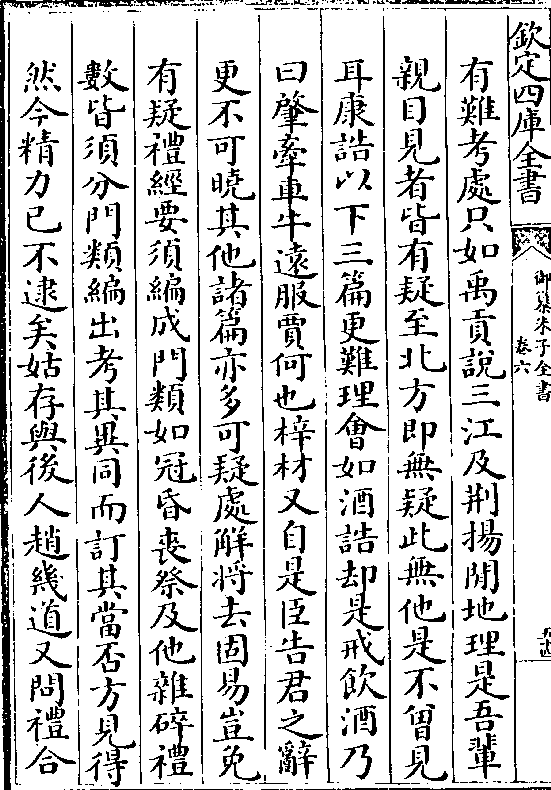 欽定四庫全書
御纂朱子全書
卷六
有難考處只如禹貢說三江及荆揚間地理是吾輩
親目見者皆有疑至北方即無疑此無他是不曾見
耳康誥以下三篇更難理會如酒誥却是戒飲酒乃
曰肇牽車牛遠服賈何也梓材又自是臣告君之辭
更不可曉其他諸篇亦多可疑處解將去固易豈免
有疑禮經要須編成門類如冠昏喪祭及他雜碎禮
數皆須分門類編出考其異同而訂其當否方見得
然今精力已不逮矣姑存與後人趙幾道又問禮合